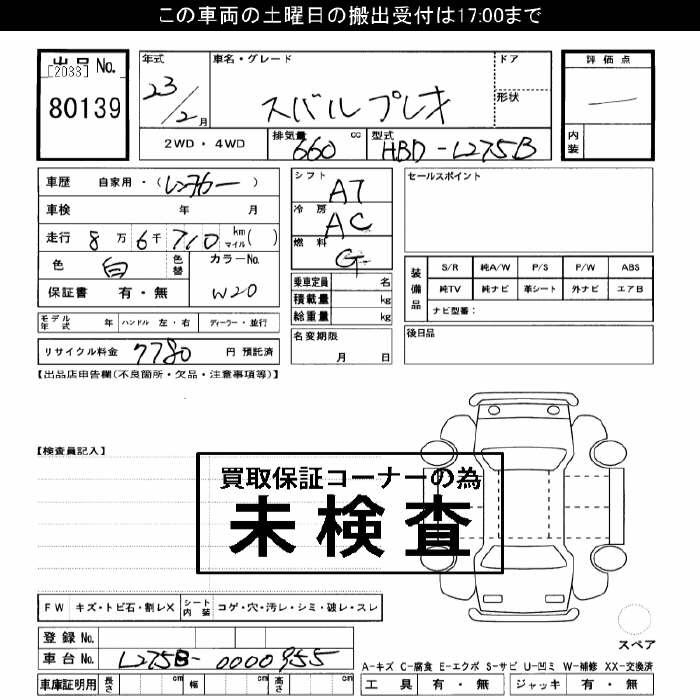 この車両の土曜日の搬出受付は17:00まで
出品 No.
[2033]
80139
年式 車名・グレード ドア 評価点
23/2 月 スバル プレオ 形状 —
内装
2WD・4WD 排気量 660 cc 型式 HBD-L275B
車歴 自家用・(レンタカー)
車検 年 月
走行 8万6千710 km マイル( )
色 白 色替 カラーNo. W20
保証書 有・無
シフト AT
冷房 AC
燃料 G
乗車定員 名
積載量 kg
総重量 kg
セールスポイント
装備品 S/R 純A/W P/S P/W ABS
純TV 純ナビ 革シート 外ナビ エアB
ナビ型番:
モデル年式 年 ハンドル 左・右 ディーラー・並行
名変期限 月 日
後日品
リサイクル料金 7780 円 預託済
【出品店申告欄(不良箇所・欠品・注意事項等)】
【検査員記入】
買取保証コーナーの為
未検査
FW キズ・トビ石・割レX シート内装 コゲ・穴・汚レ・シミ・破レ・スレ
登録 No.
車台 No. L275B-0000955
スペア
A-キズ C-腐食 E-エクボ S-サビ U-凹ミ W-補修 XX-交換済
車庫証明用 長さ cm 幅 cm 高さ cm
工具 有・無 ジャッキ 有・無